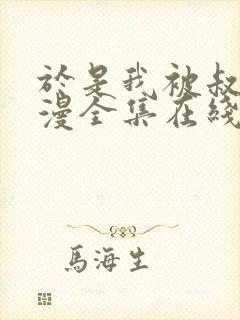 於是我被叔
漫全集在綫
馬海生